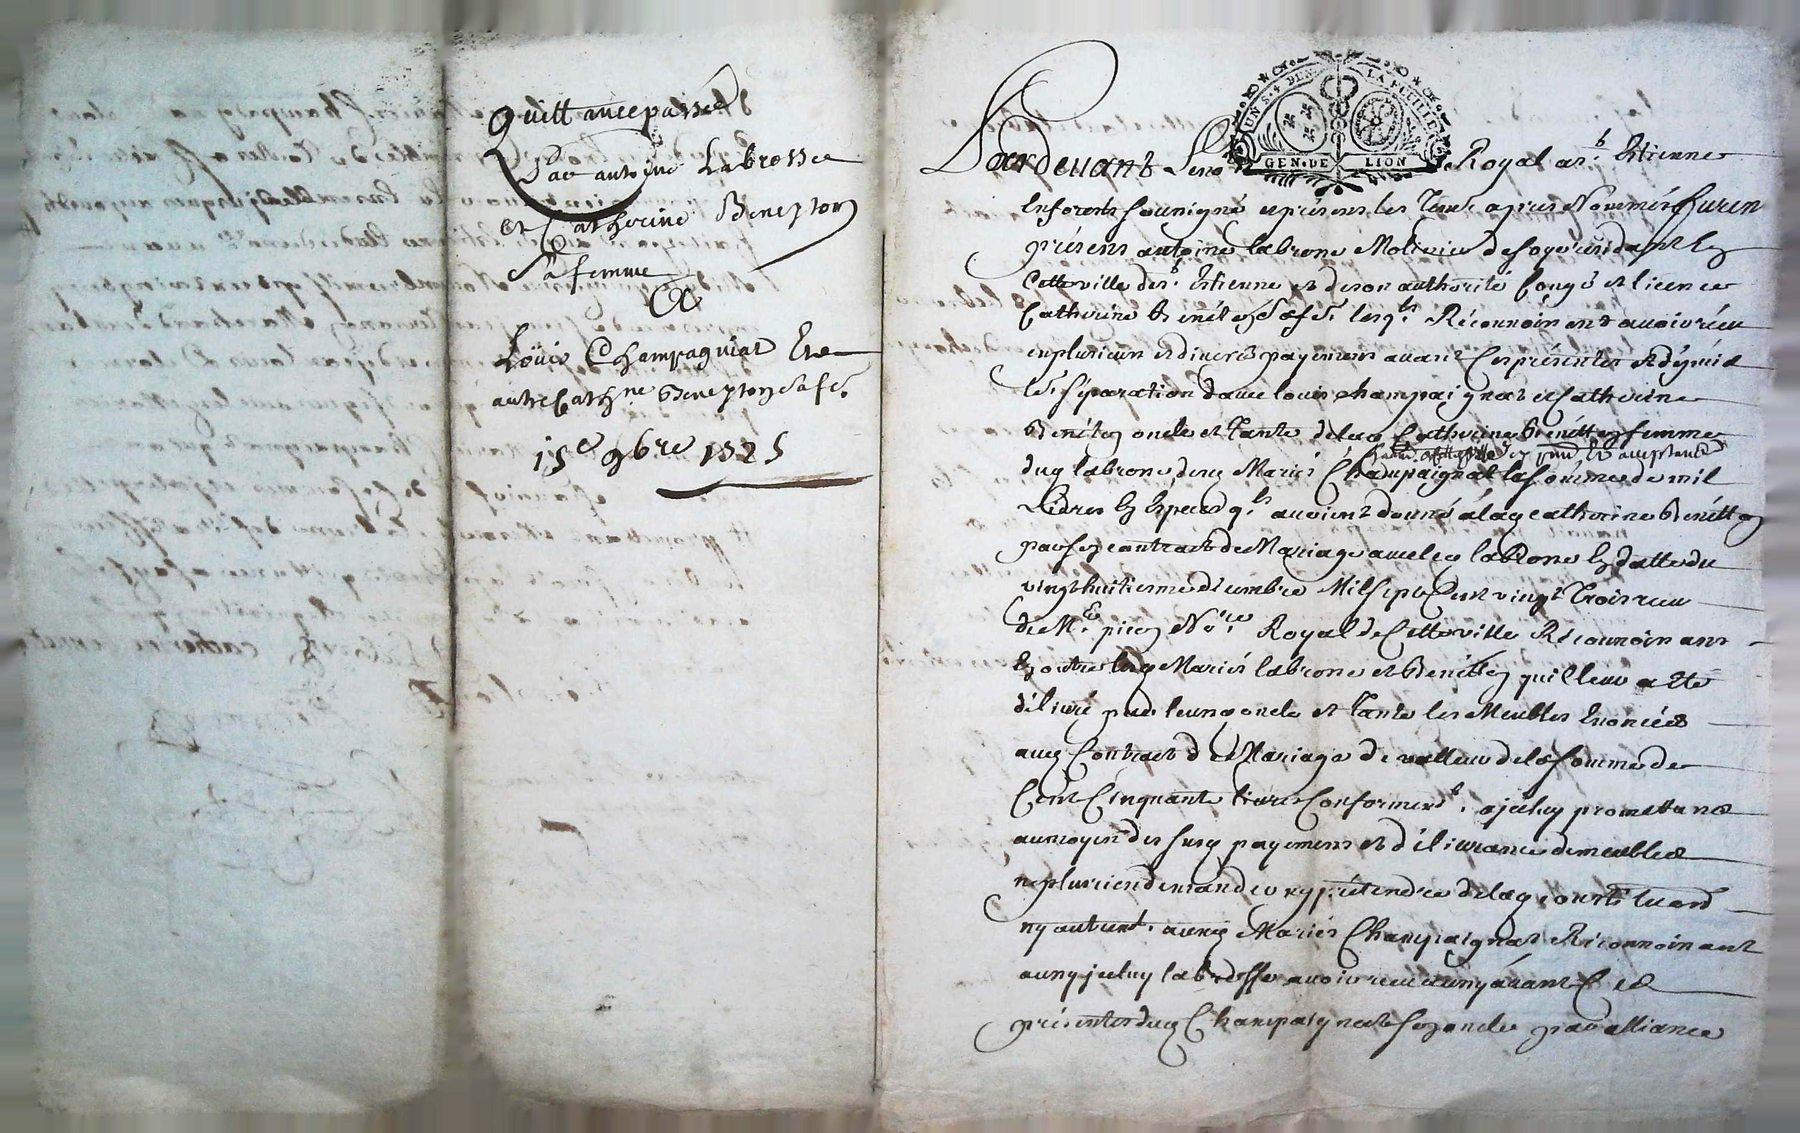 Quittance passée
Par antoine Labrosse
et Catherine Beneyton
Sa femme
A
Loüis Champagniat Et
autre Cathne Beneyton sa fe.
15e 9bre 1725
UN S. 4 DEN. LA FEUILLE
GEN. DE LION
Pardevant Royal a st. Etienne
En forests soussigné et présens les Temoins apres Nommés furent
présens antoine labrosse Molinier de soye residant En
Cette ville de st. Etienne et de son authorité Congé et licence
Catherine Benétton Sa fe. lesqls Réconnoissent avoir réceu
en plusieurs et divers payemens avant Ces présentes et dépuis
la séparation d'avec louis champaignat et Catherine
Benéton oncle et Tante de lad Catherine Benétton femme
dud labrosse desd Mariés Champaignat la somme de mil
Livres En Especes qls avoient donné à lad catherine Benétton
par son contract de Mariage avec led labrosse En datte du
vingt huitieme décembre Mil sept Cent vingt Trois receu
de Me. picon Nore. Royal de Cette ville Réconnoissans
En outre lesd Mariés labrosse et Benétton qu'il leur a Eté
délivré par leursd oncle et Tante les Meubles Enoncés
aud Contract de Mariage de valleur de la somme de
Cent Cinquante livres Conformemt. a jceluy promettans
au moyen des susd payemens et délivrance de meubles
ne plus rien demander ny prétendre de lad
ny autremt. auxd Mariés Champaignat Réconnoissant
aussy jceluy labrosse avoir receu aussy avant Ces
présentes dud Champaignat son oncle par alliance